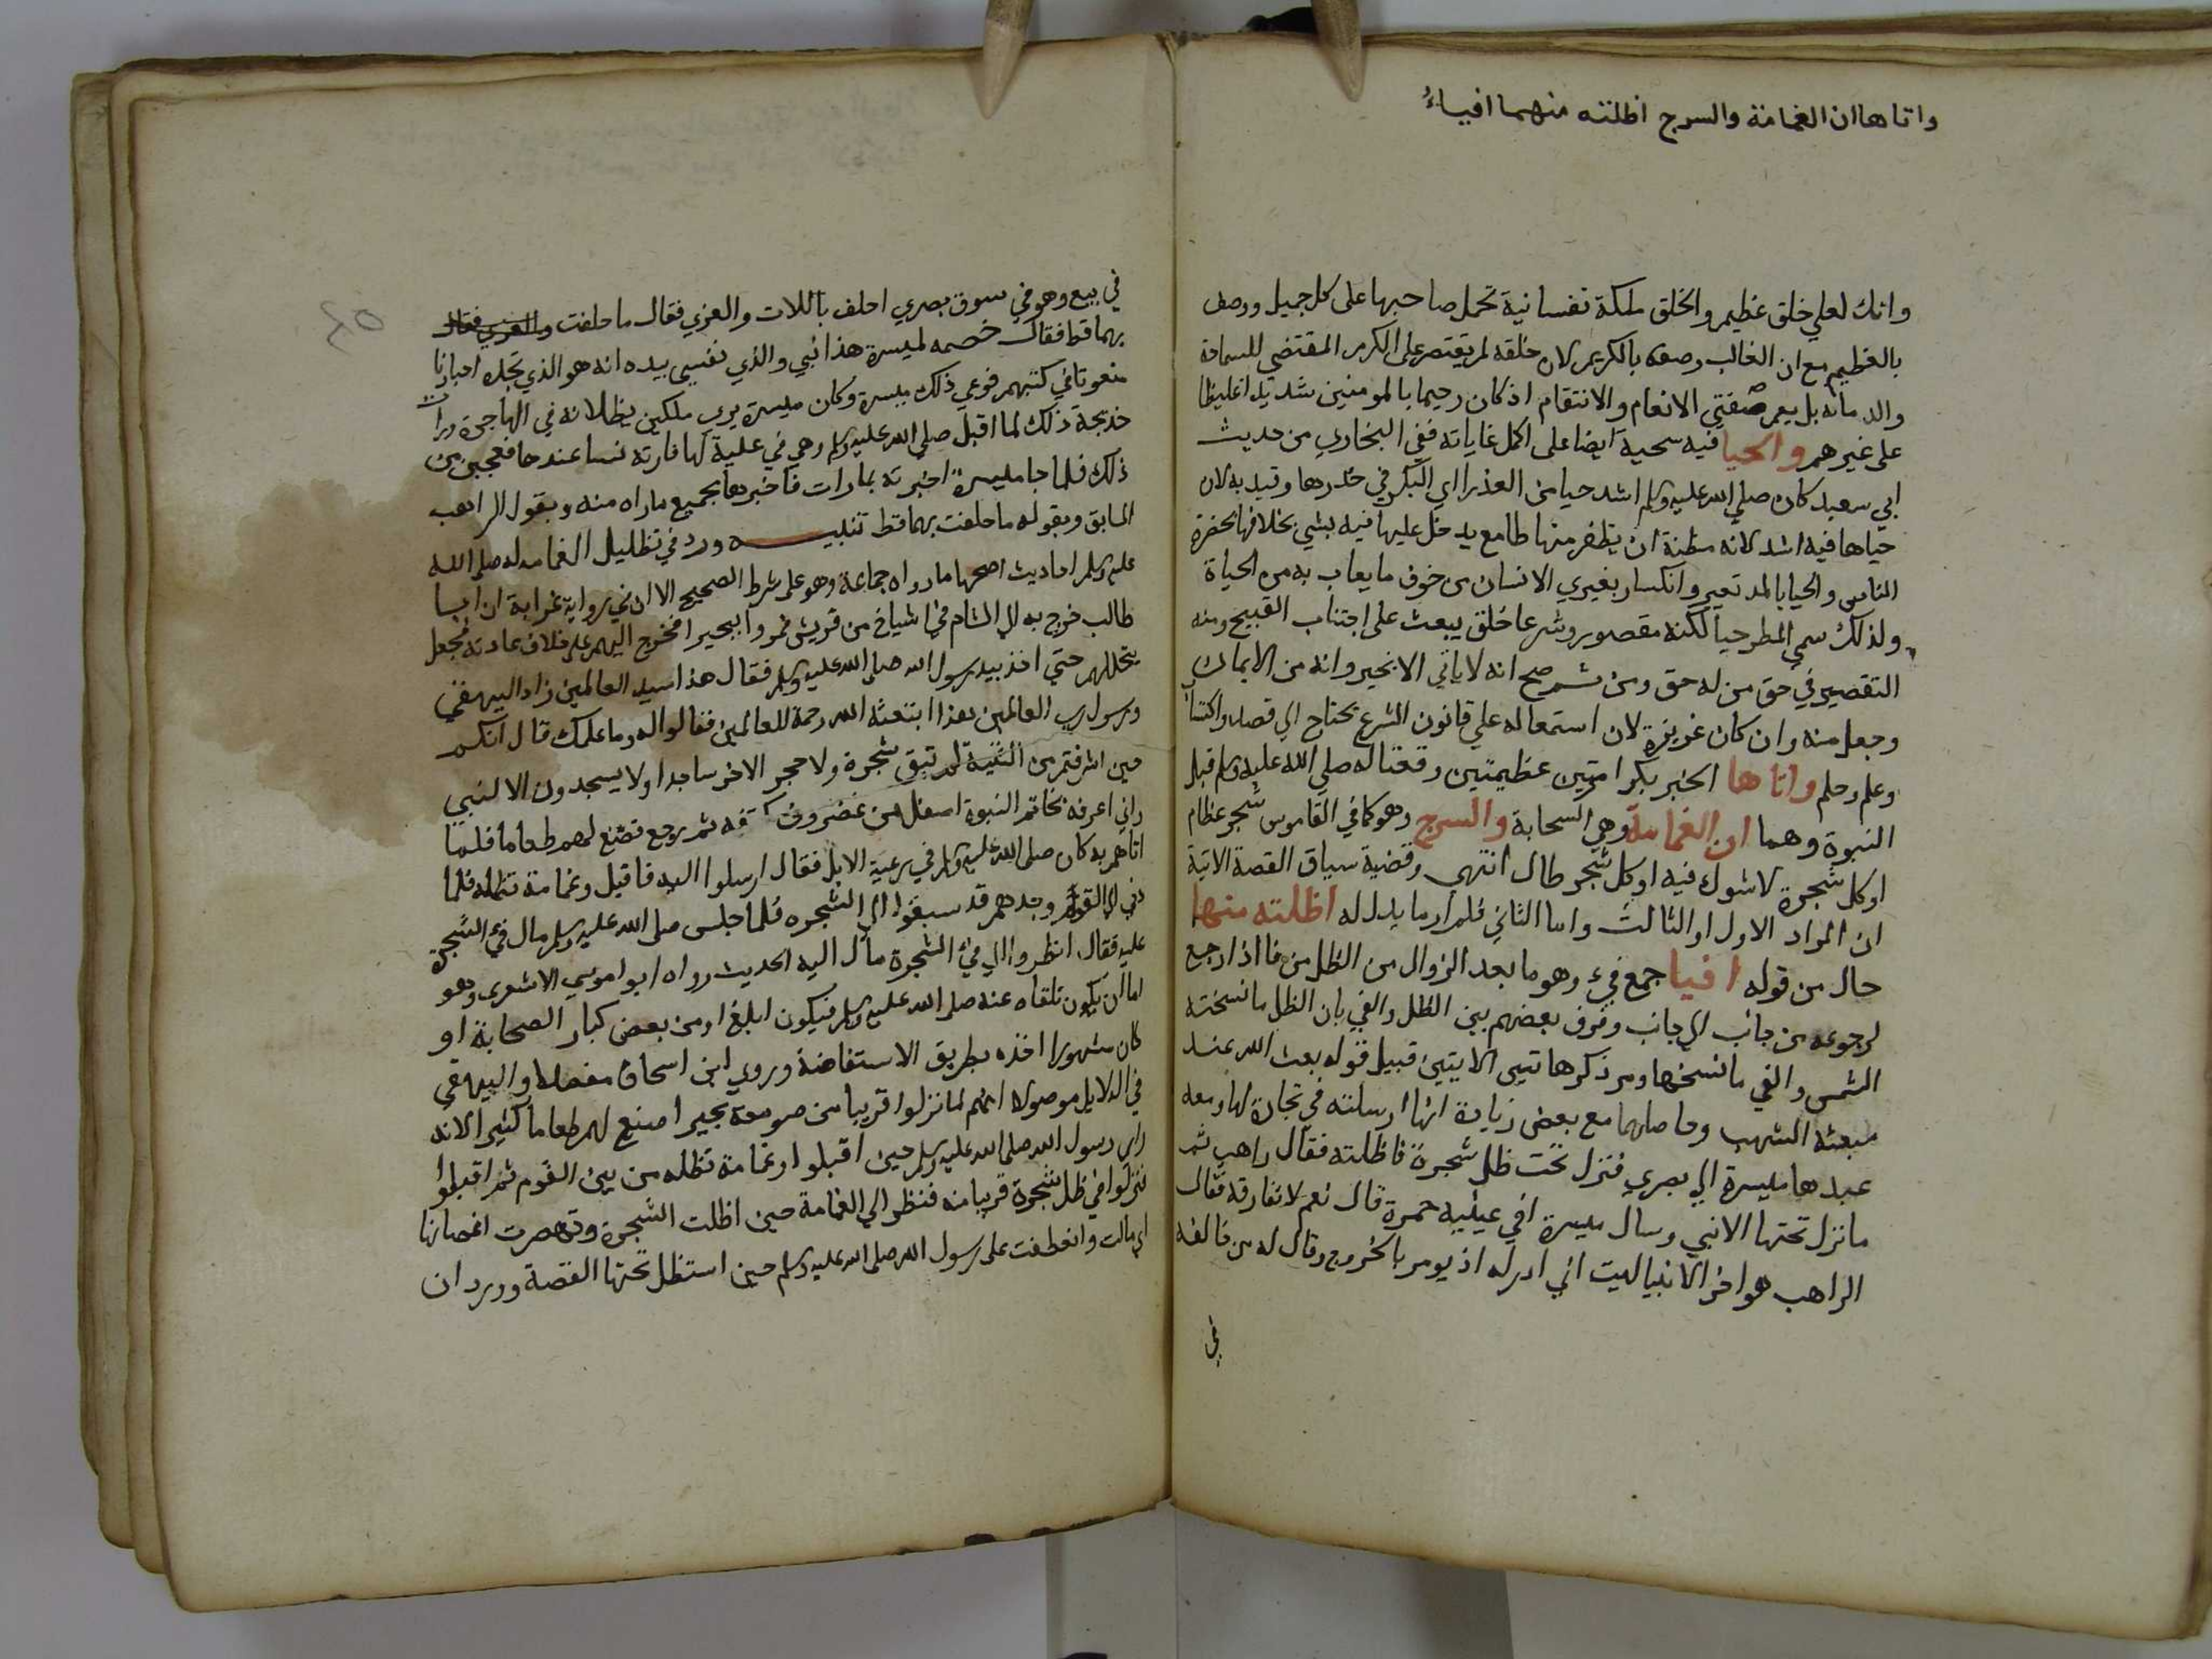 واتاها ان الغمامة والسرح اظلته منهما افياءُ
وانك لعلي خلق عظيم والخلق ملكة نفسانية تحمل صاحبها على كل جميل ووصف
بالعظيم مع ان الغالب وصفه بالكريم لان خلقه لم يقتصر على الكرم المقتضي للسماحة
والدماثه بل يعم صفتي الانعام والانتقام اذ كان رحيما بالمومنين شديدا غليظا
على غيرهم والحيا فيه سجية ايضا على اكمل غاياته ففي البخاري من حديث
ابي سعيد كان صلي الله عليه وسلم اشد حيا من العذرا اي البكر في خدرها وقيد به لان
حياها فيه اشد لانه مظنة ان يظفر منها طامع يدخل عليها فيه بشي بخلافها بحضرة
الناس والحيا بالمد تغير وانكسار يعتري الانسان من خوف ما يعاب به من الحياة
ولذلك سمي المطر حيا لكنه مقصور وشرعا خلق يبعث على اجتناب القبيح ومنه
التقصير في حق من له حق ومن ثم صح انه لا ياتي الا بخير وانه من الايمان
وجعل منه وان كان غريزة لان استعماله علي قانون الشرع يحتاج الي قصد واكتساب
وعلم وحلم واتاها الخبر بكرامتين عظيمتين وقعتا له صلي الله عليه وسلم قبل
النبوة وهما ان الغمامة وهي السحابة والسرح وهو كما في القاموس شجر عظام
او كل شجرة لا شوك فيه او كل شجر طال انتهى وقضية سياق القصة الاتية
ان المراد الاول او الثالث واما الثاني فلم ار ما يدل له اظلته منهما
حال من قوله افيا جمع فيء وهو ما بعد الزوال من الظل من فا اذا رجع
لرجوعه من جانب الي جانب وفرق بعضهم بين الظل والفي بان الظل ما نسخته
الشمس والفي ما نسخها ومر ذكرها تين الايتين قبيل قوله بعث الله عند
مبعثه الشهب وحاصلهما مع بعض زيادة انها ارسلته في تجارة لها ومعه
عبدها ميسرة الي بصري فنزل تحت ظل شجرة فاظلته فقال راهب ثم
ما نزل تحتها الا نبي وسال ميسرة افي عينيه حمرة قال نعم لا تفارقه فقال
الراهب هو اخر الانبيا ليت اني ادركه اذ يومر بالخروج وقال له من خالفه
في
في بيع وهو في سوق بصري احلف باللات والعزي فقال ما حلفت والعزي فقال
بهما قط فقال خصمه لميسرة هذا نبي والذي نفسي بيده انه هو الذي تجده احبارنا
منعوتا في كتبهم فوعي ذلك ميسرة وكان ميسرة يري ملكين يظلانه في الهاجرة ورات
خديجة ذلك لما اقبل صلي الله عليه وسلم وهي في علية لها فارته نسا عندها فعجبن من
ذلك فلما جا ميسرة اخبرته بما رات فاخبرها بجميع ما راه منه وبقول الراهب
السابق وبقوله ما حلفت بهما قط تنبيه ورد في تظليل الغمامه له صلي الله
عليه وسلم احاديث اصحها ما رواه جماعة وهو على شرط الصحيح الا ان في رواية غرابة ان ابا
طالب خرج به الي الشام في اشياخ من قريش فمروا ببحيرا فخرج اليهم على خلاف عادته فجعل
يتخللهم حتي اخذ بيد رسول الله صلي الله عليه وسلم فقال هذا سيد العالمين زاد البيهقي
ورسول رب العالمين هذا ابتعثه الله رحمة للعالمين فقالوا له وما علمك قال انكم
حين اشرفتم من الثنية لم تبق شجرة ولا حجر الا خر ساجدا ولا يسجدون الا لنبي
واني اعرفه بخاتم النبوة اسفل من غضروف كتفه ثم رجع فصنع لهم طعاما فلما
اتاهم به كان صلى الله عليه وسلم في رعية الابل فقال ارسلوا اليه فاقبل وغمامة تظله فلما
دني الي القوم وجدهم قد سبقوا الي الشجره فلما جلس صلى الله عليه وسلم مال فيء الشجرة
عليه فقال انظروا الي فيء الشجرة مال اليه الحديث رواه ابوا موسي الاشعري وهو
اما ان يكون تلقاه عنه صلى الله عليه وسلم فيكون ابلغ او من بعض كبار الصحابة او
كان مشهورا اخذه بطريق الاستفاضة وروي ابن اسحاق مفصلا والبيهقي
في الدلايل موصولا انهم لما نزلوا قريبا من صومعة بحيرا صنع لهم طعاما كثيرا لانه
راي رسول الله صلى الله عليه وسلم حين اقبلوا وغمامة تظله من بين القوم ثم اقبلوا
فنزلوا في ظل شجرة قريبا منه فنظر الي الغمامة حين اظلت الشجرة وتهصرت اغصانها
اي مالت وانعطفت على رسول الله صلى الله عليه وسلم حين استظل تحتها القصة وورد ان